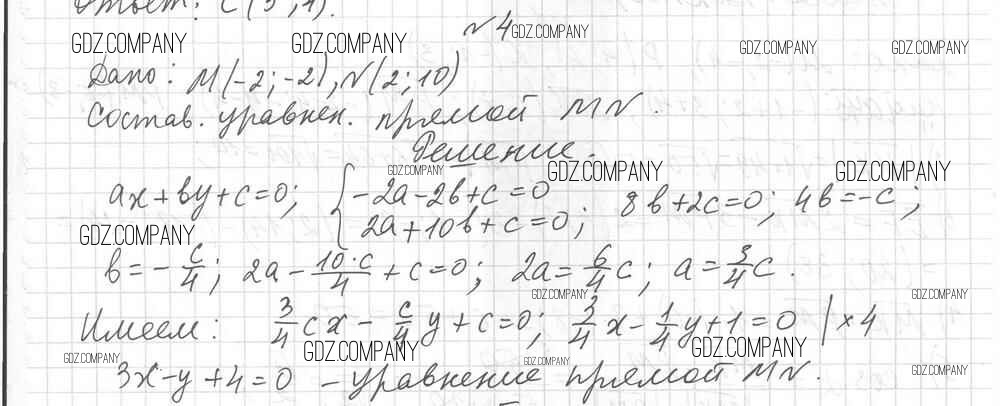 Ответ: С(3;1).
№4 GDZ.COMPANY
GDZ.COMPANY GDZ.COMPANY GDZ.COMPANY GDZ.COMPANY
Дано: M(-2;-2), N(2;10)
Состав. уравнен. прямой MN.
Решение.
GDZ.COMPANY GDZ.COMPANY GDZ.COMPANY
ax+by+c=0; { -2a-2b+c=0 2a+10b+c=0; 8b+2c=0; 4b=-c;
GDZ.COMPANY
b=-c/4; 2a-10·c/4+c=0; 2a=6/4c; a=3/4c.
GDZ.COMPANY GDZ.COMPANY
Имеем: 3/4cx-c/4y+c=0; 3/4x-1/4y+1=0 |×4
GDZ.COMPANY GDZ.COMPANY GDZ.COMPANY GDZ.COMPANY GDZ.COMPANY
3x-y+4=0 - уравнение прямой MN.